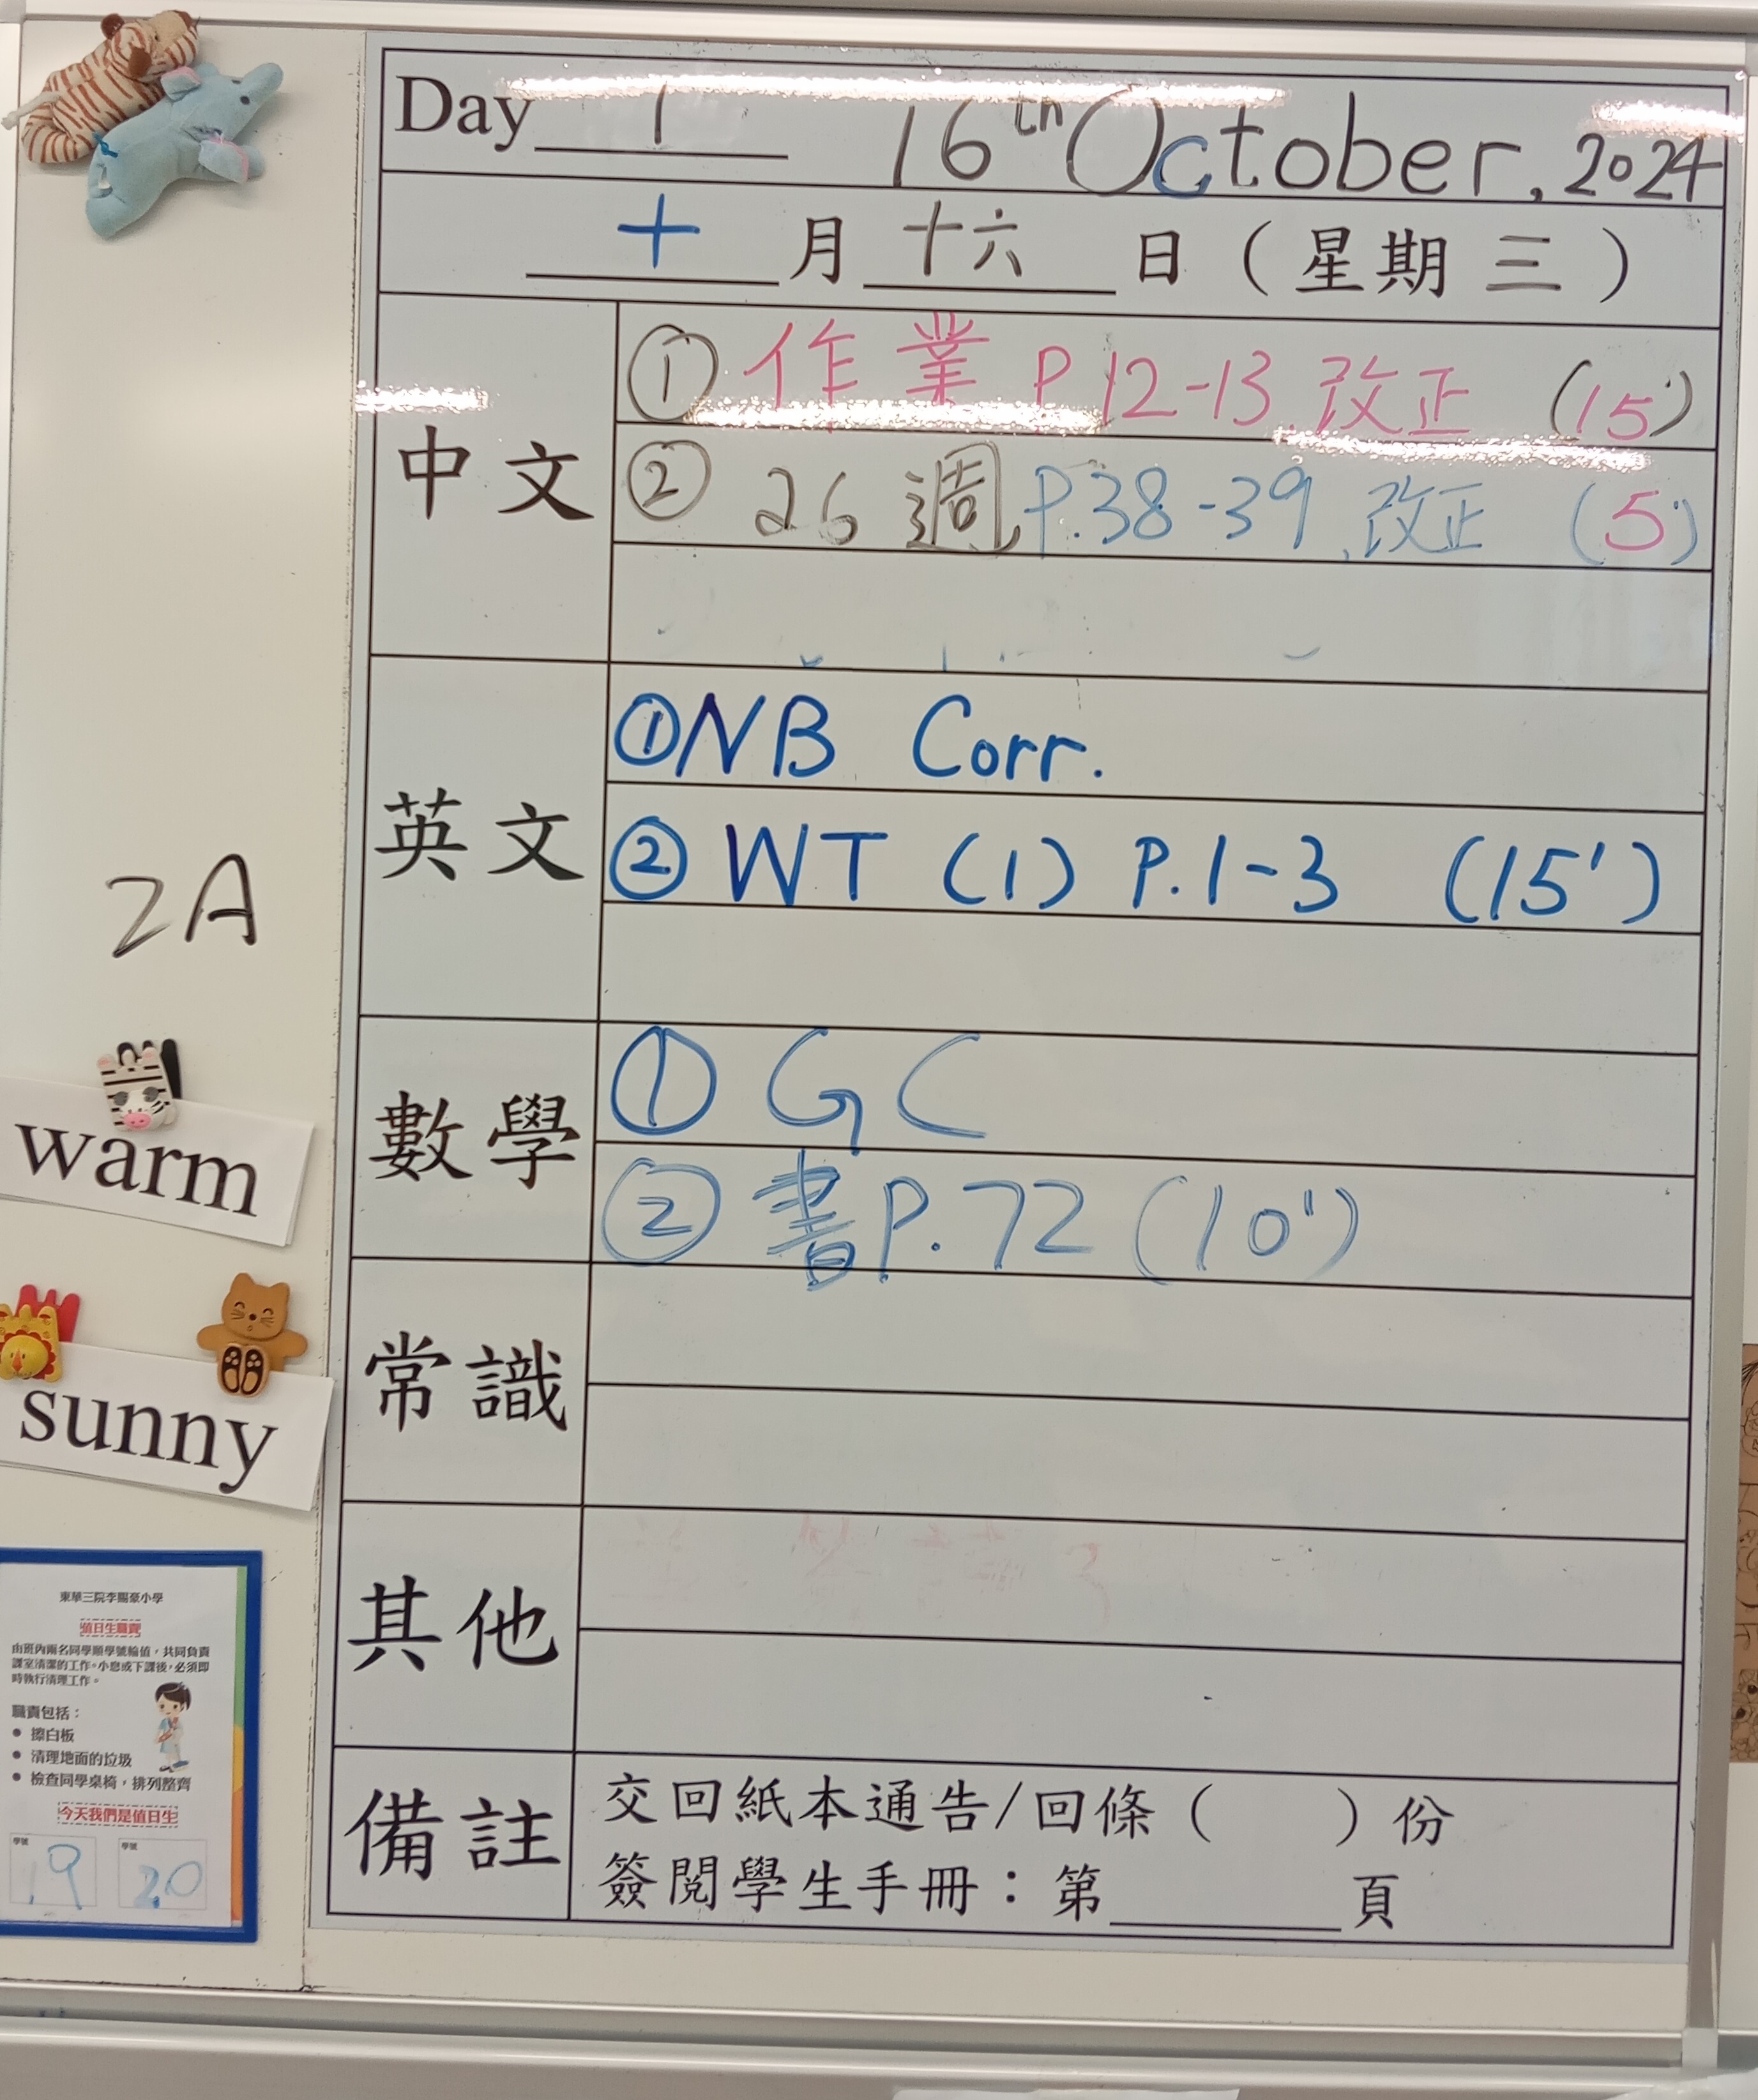 Day 1 16th October, 2024
十 月 十六 日（星期 三）
中文
① 作業 P.12-13.改正 (15')
② 26週 P.38-39,改正 (5')
英文
① NB Corr.
② WT (1) P.1-3 (15')
數學
① GC
② 書P.72 (10')
常識
其他
備註
交回紙本通告/回條（ ）份
簽閱學生手冊：第 頁
2A
warm
sunny
東華三院李賜豪小學
值日生職責
由班內兩名同學順學號輪值，共同負責
課室清潔的工作。小息或下課後，必須即
時執行清理工作。
職責包括：
● 擦白板
● 清理地面的垃圾
● 檢查同學桌椅，排列整齊
今天我們是值日生
學號 19 學號 20